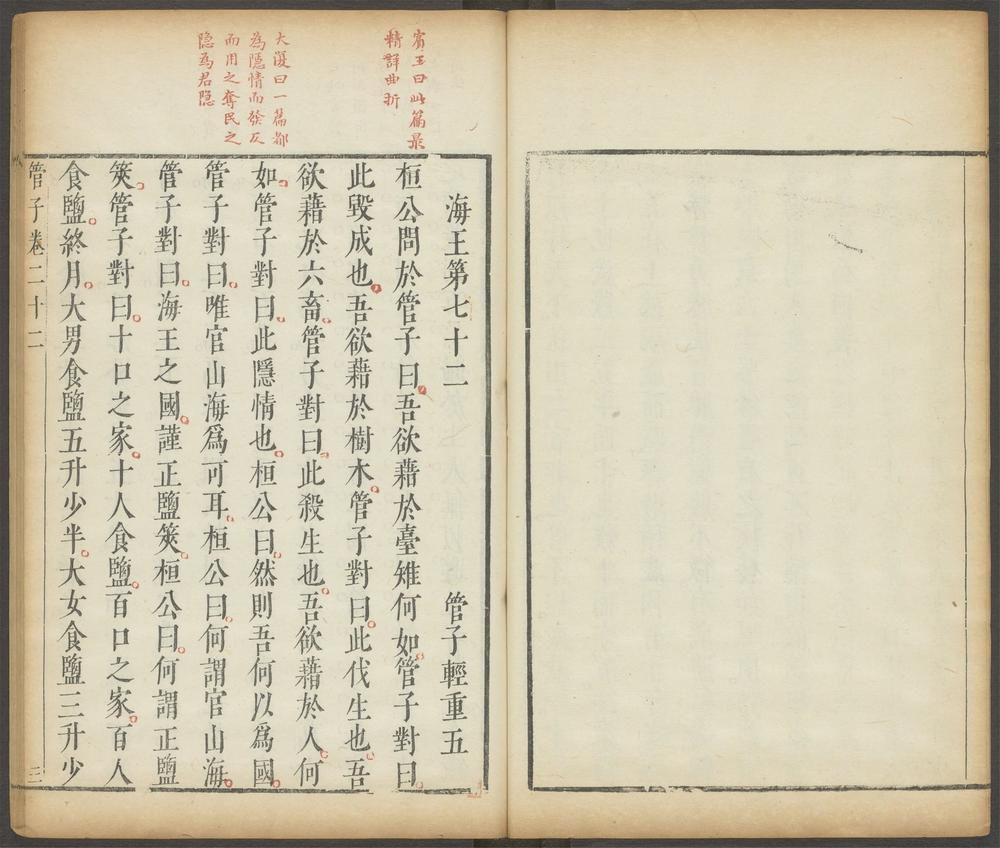 賓王曰此篇最
精詳曲折
大復曰一篇都
為隱情而發反
而用之奪民之
隐為君隐
海王第七十二　管子輕重五
桓公問於管子曰吾欲藉於臺雉何如管子對曰
此毀成也吾欲藉於樹木管子對曰此伐生也吾
欲藉於六畜管子對曰此殺生也吾欲藉於人何
如管子對曰此隱情也桓公曰然則吾何以爲國
管子對曰唯官山海爲可耳桓公曰何謂官山海
管子對曰海王之國謹正鹽筴桓公曰何謂正鹽
筴管子對曰十口之家十人食鹽百口之家百人
食鹽終月大男食鹽五升少半大女食鹽三升少
管子卷二十二　三